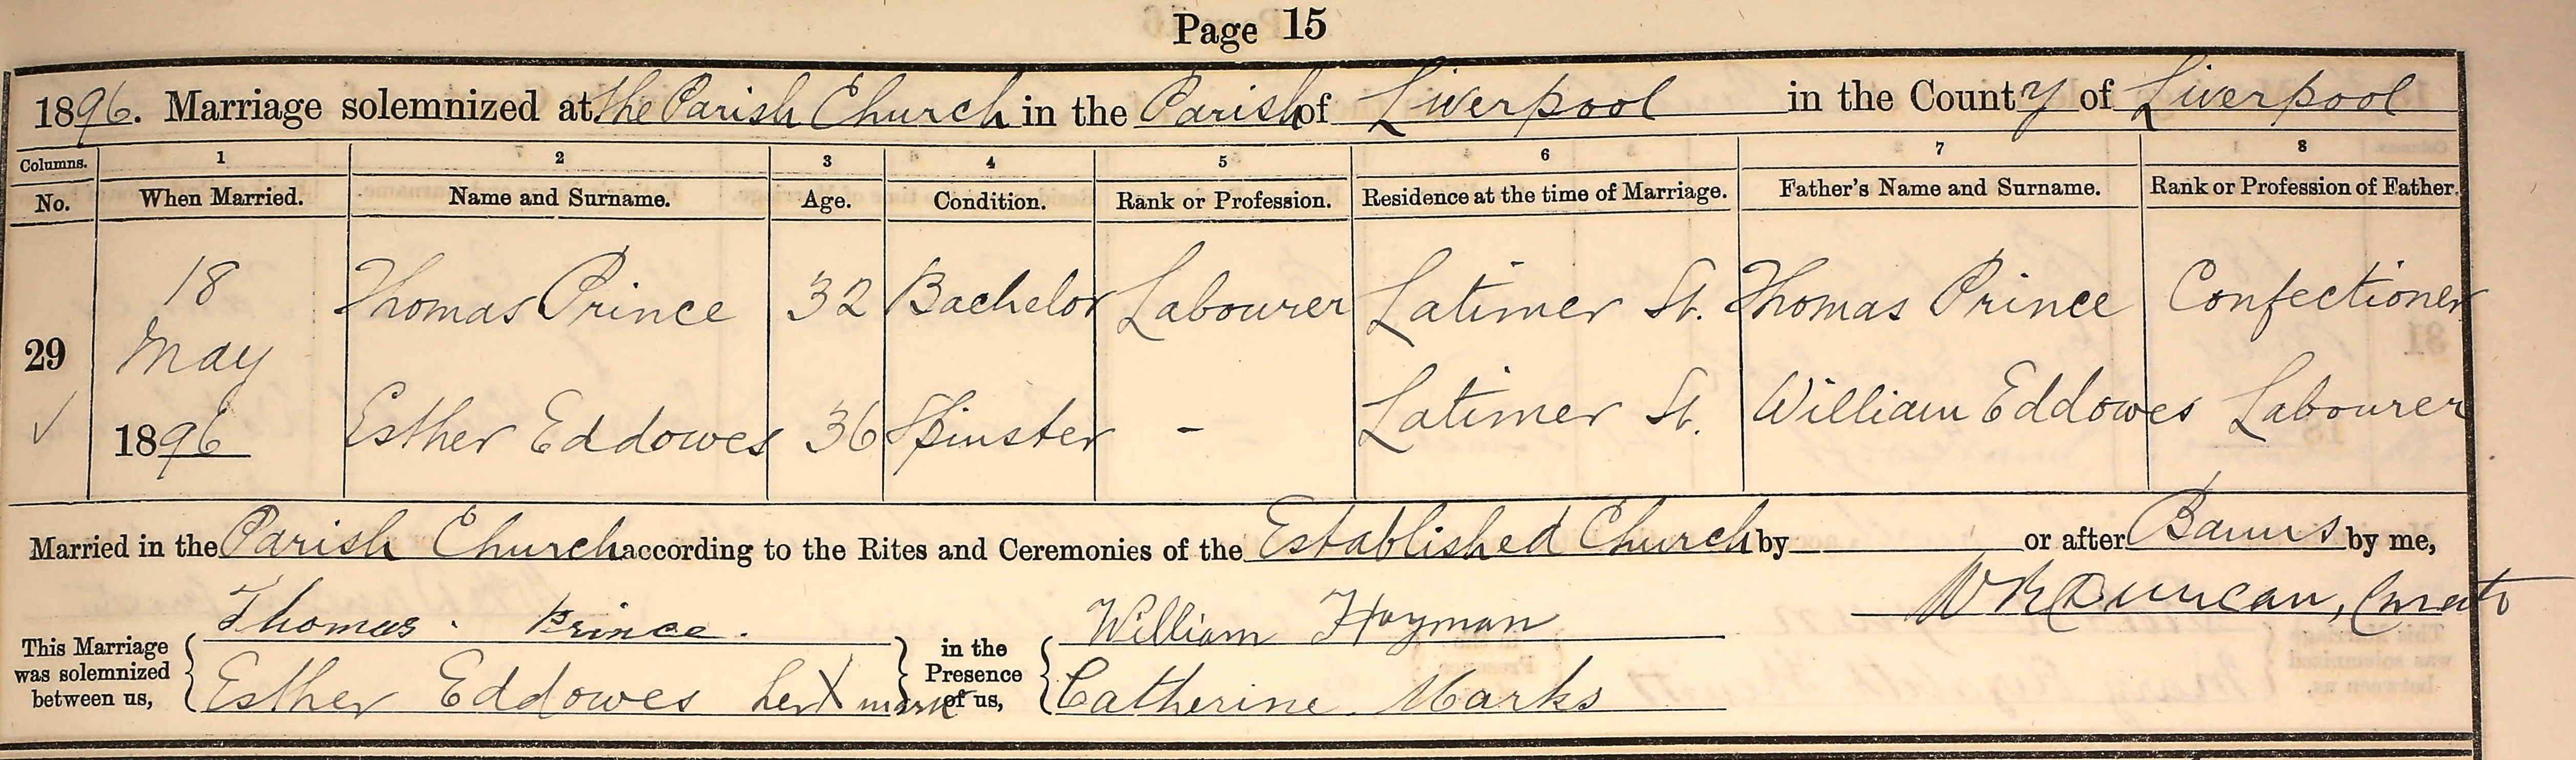 Page 15
1896. Marriage solemnized at the Parish Church in the Parish of Liverpool in the County of Liverpool
Columns. 1 2 3 4 5 6 7 8
No. When Married. Name and Surname. Age. Condition. Rank or Profession. Residence at the time of Marriage. Father's Name and Surname. Rank or Profession of Father.
18 Thomas Prince 32 Bachelor Labourer Latimer St. Thomas Prince Confectioner
29 May
1896 Esther Eddowes 36 Spinster - Latimer St. William Eddowes Labourer
Married in the Parish Church according to the Rites and Ceremonies of the Established Church by or after Banns by me,
W R Duncan, Curate
This Marriage was solemnized between us, Thomas Prince. in the Presence of us, William Hayman
Esther Eddowes her X mark Catherine Marks